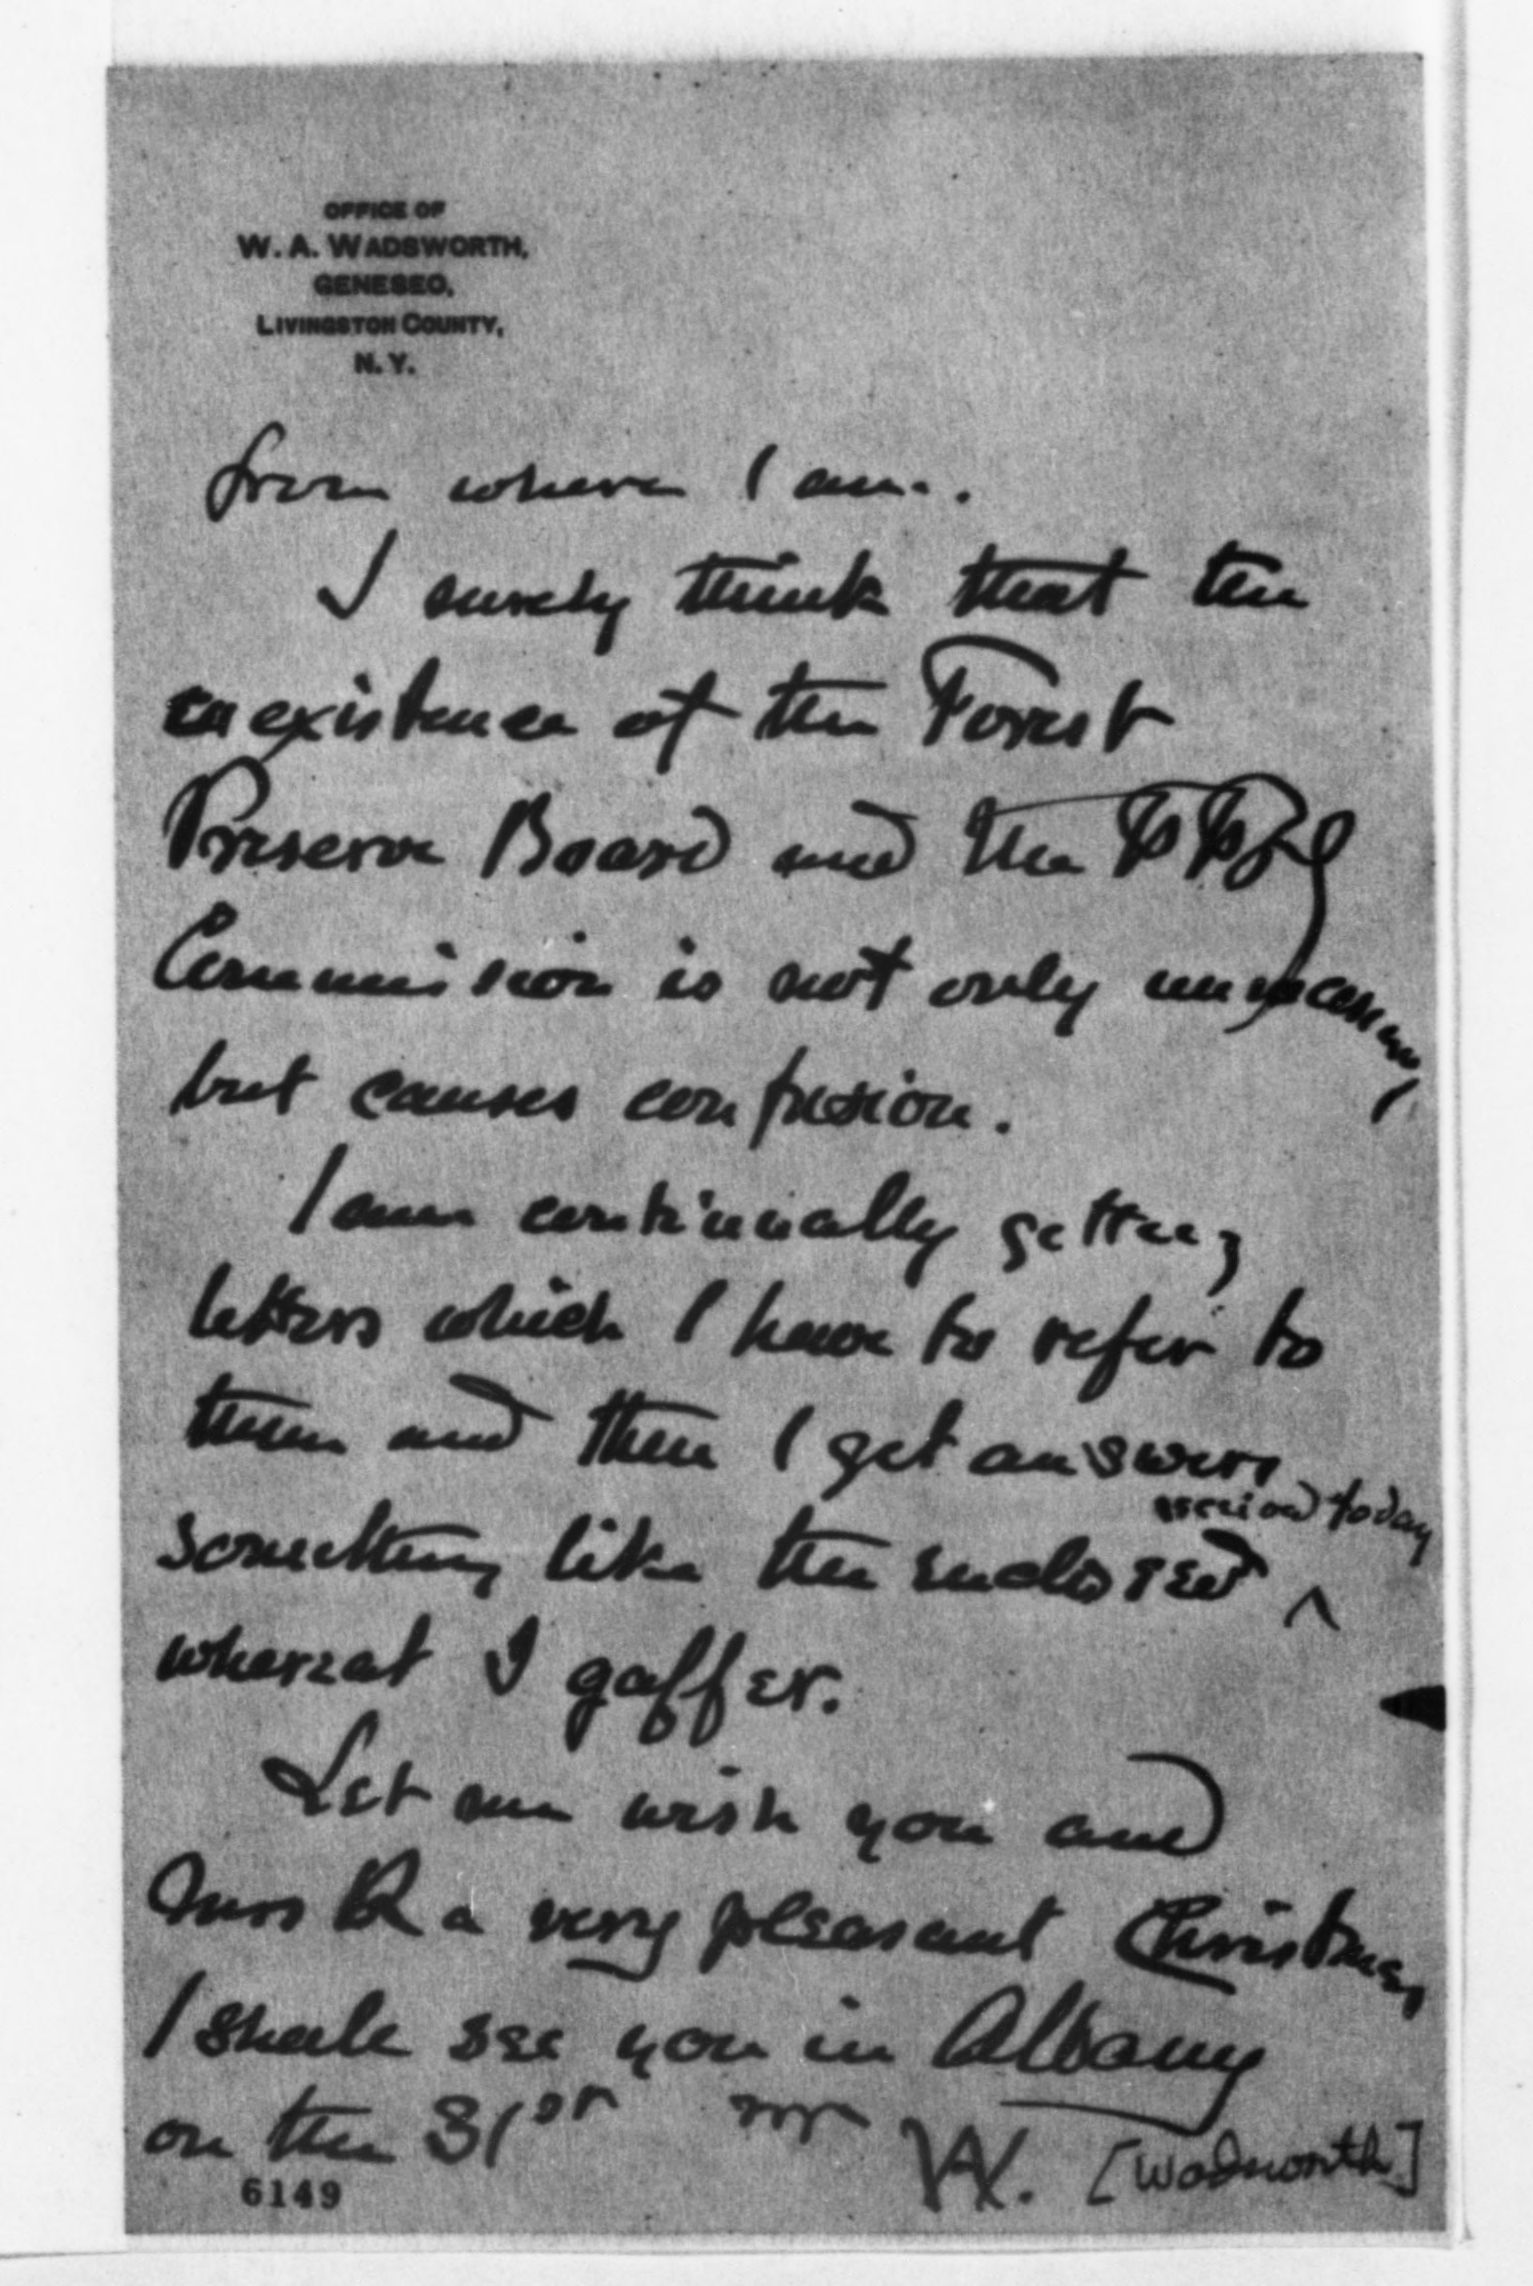 OFFICE OF
W. A. WADSWORTH,
GENESEO,
LIVINGSTON COUNTY,
N. Y.
from where I am.
I surely think that the
coexistence of the Forest
Preserve Board and the F F & G
Commission is not only unnecessary
but causes confusion.
I am continually getting
letters which I have to refer to
them and then I get answers
received today
something like the enclosed ^
whereat I gaffer.
Let me wish you and
Mrs R a very pleasant Christmas,
I shall see you in Albany
on the 31st
W. [Wadsworth]
6149